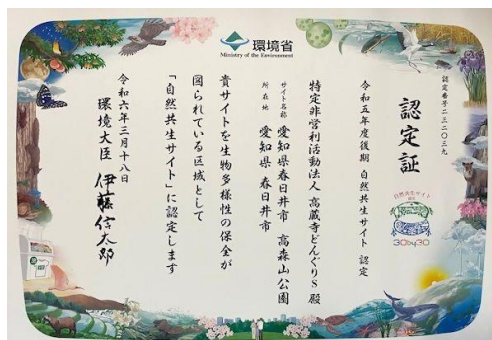 環境省
Ministry of the Environment
認定番号二三二〇三九
認定証
自然共生サイト
30by30
令和五年度後期 自然共生サイト 認定
特定非営利活動法人 高蔵寺どんぐりS 殿
サイト名称 愛知県春日井市 高森山公園
所在地 愛知県 春日井市
貴サイトを生物多様性の保全が
図られている区域として
「自然共生サイト」に認定します
令和六年三月十八日
環境大臣 伊藤信太郎